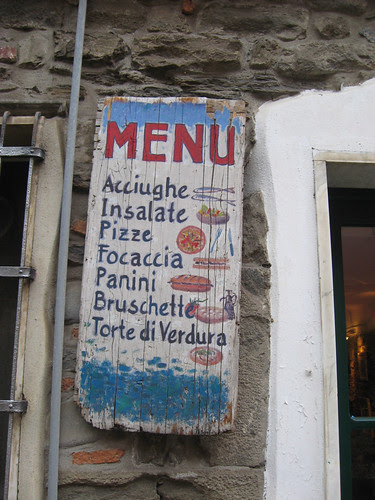 MENU
Acciughe
Insalate
Pizze
Focaccia
Panini
Bruschette
Torte di Verdura